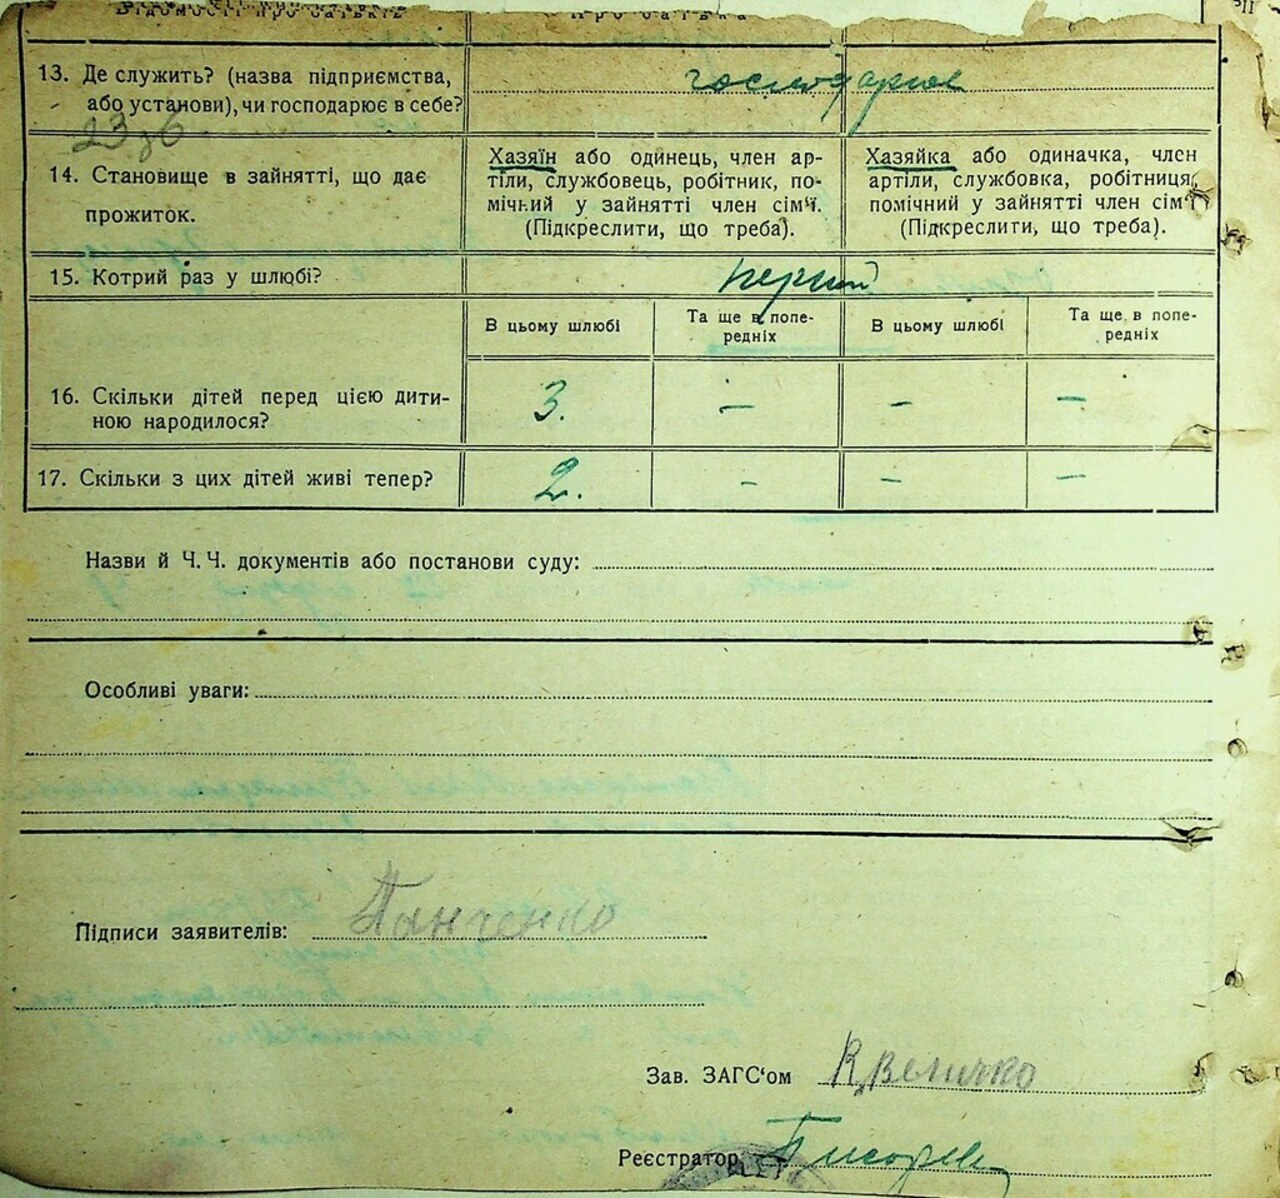 Відомості про батьків
Про батька
13. Де служить? (назва підприємства,
або установи), чи господарює в себе?
господарює
14. Становище в зайнятті, що дає
прожиток.
Хазяїн або одинець, член ар-
тіли, службовець, робітник, по-
мічний у зайнятті член сім'ї.
(Підкреслити, що треба).
Хазяйка або одиначка, член
артіли, службовка, робітниця,
помічний у зайнятті член сім'ї
(Підкреслити, що треба).
15. Котрий раз у шлюбі?
перший
В цьому шлюбі
Та ще в попе-
редніх
В цьому шлюбі
Та ще в попе-
редніх
16. Скільки дітей перед цією дити-
ною народилося?
3. — — —
17. Скільки з цих дітей живі тепер?
2. - — —
Назви й Ч. Ч. документів або постанови суду:
Особливі уваги:
Підписи заявителів: Панченко
Зав. ЗАГС‘ом Величко
Реєстратор